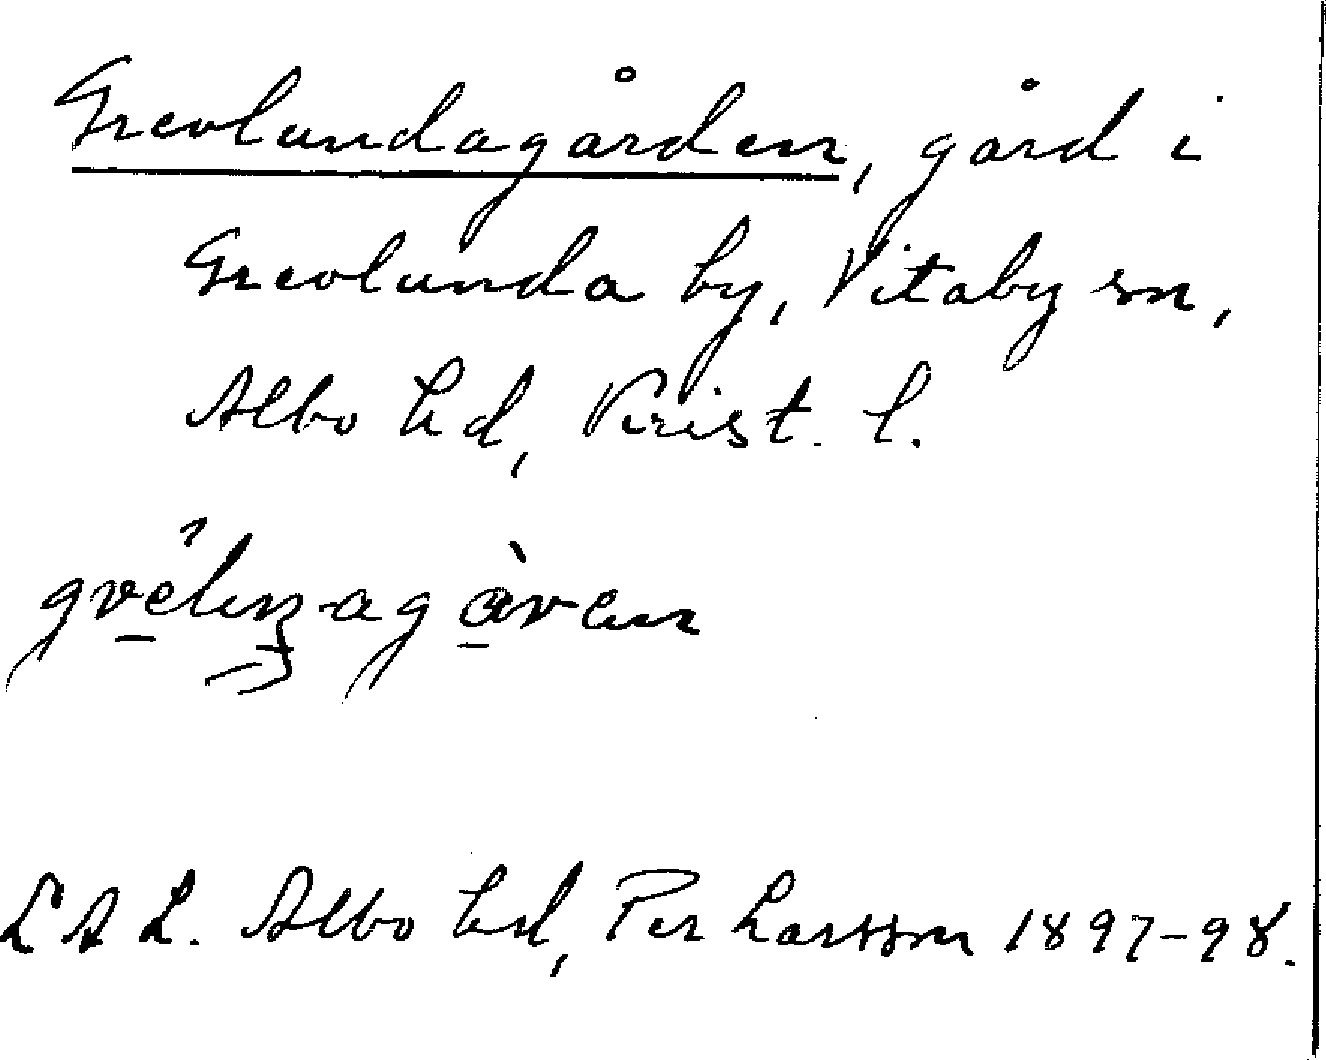 Grevlundagården, gård i
Grevlunda by, Vitaby sn,
Albo hd, Krist. l.
LAL. Albo hd, Per Larsson 1897-98.